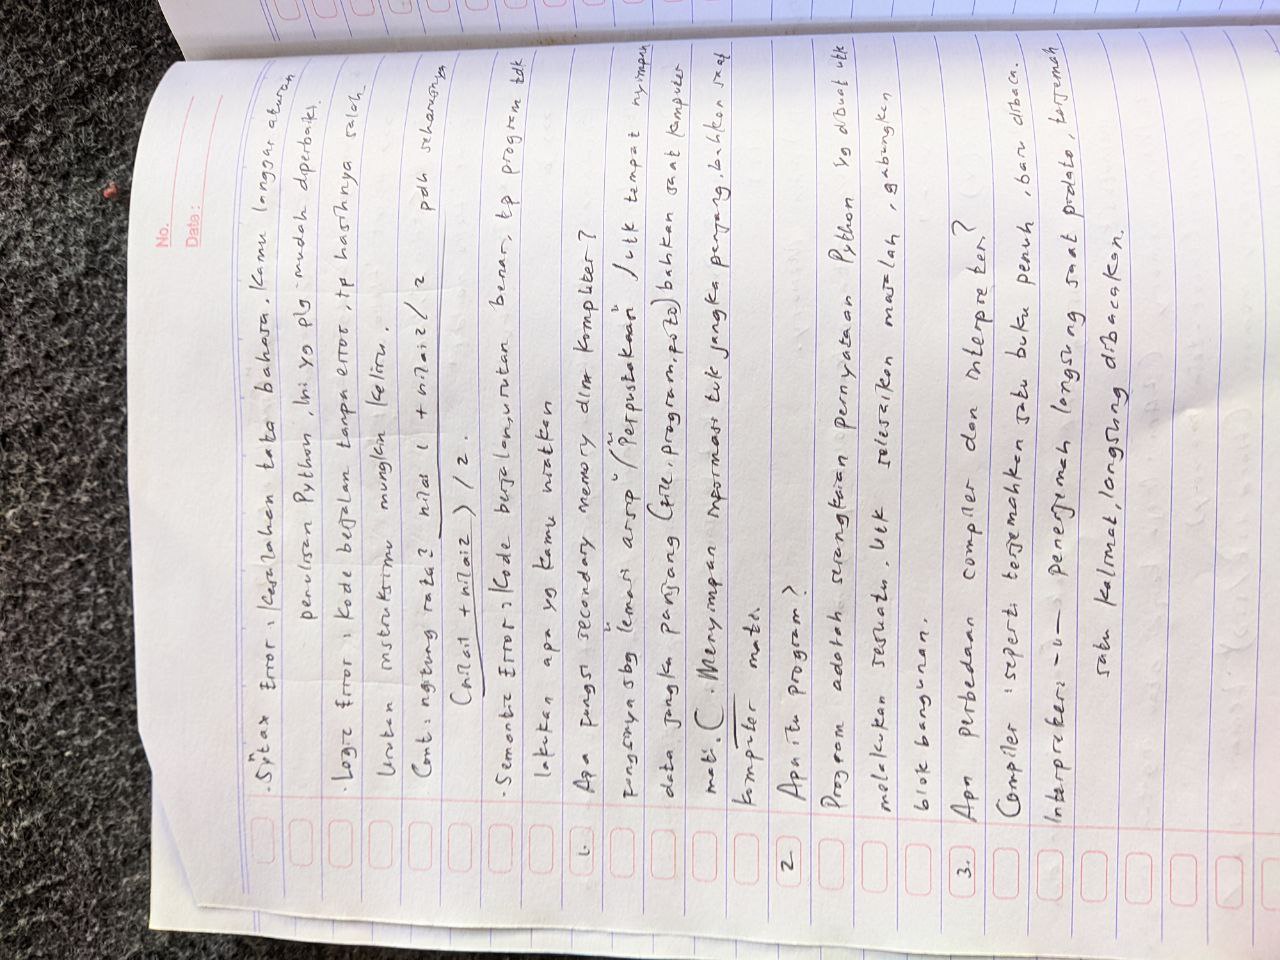 No.
Date:
· Syntax Error : Kesalahan tata bahasa. Kamu langgar aturan
penulisan Python, Ini yg plg mudah diperbaiki.
· Logic Error : Kode berjalan tanpa error, tp hasilnya salah.
Urutan instruksimu mungkin keliru.
Cont: ngitung rata2 nilai 1 + nilai2 / 2 pdh seharusnya
(nilai1 + nilai2) / 2.
· Semantic Error : Kode berjalan, urutan benar, tp program tdk
lakukan apa yg kamu niatkan
1. Apa fungsi secondary memory dlm komputer?
Fungsinya sbg "lemari arsip"/"Perpustakaan" / utk tempat nyimpan
data jangka panjang (file, program, foto) bahkan saat komputer
mati. ( Menyimpan informasi tuk jangka panjang, bahkan saat
komputer mati.
2. Apa itu program?
Program adalah serangkaian pernyataan Python yg dibuat utk
melakukan sesuatu. Utk selesaikan masalah, gabungkan
blok bangunan.
3. Apa perbedaan compiler dan interpreter?
Compiler : seperti terjemahkan satu buku penuh, baru dibaca.
Interpreter: -"- penerjemah langsung saat pidato, terjemah
satu kalimat, langsung dibacakan.